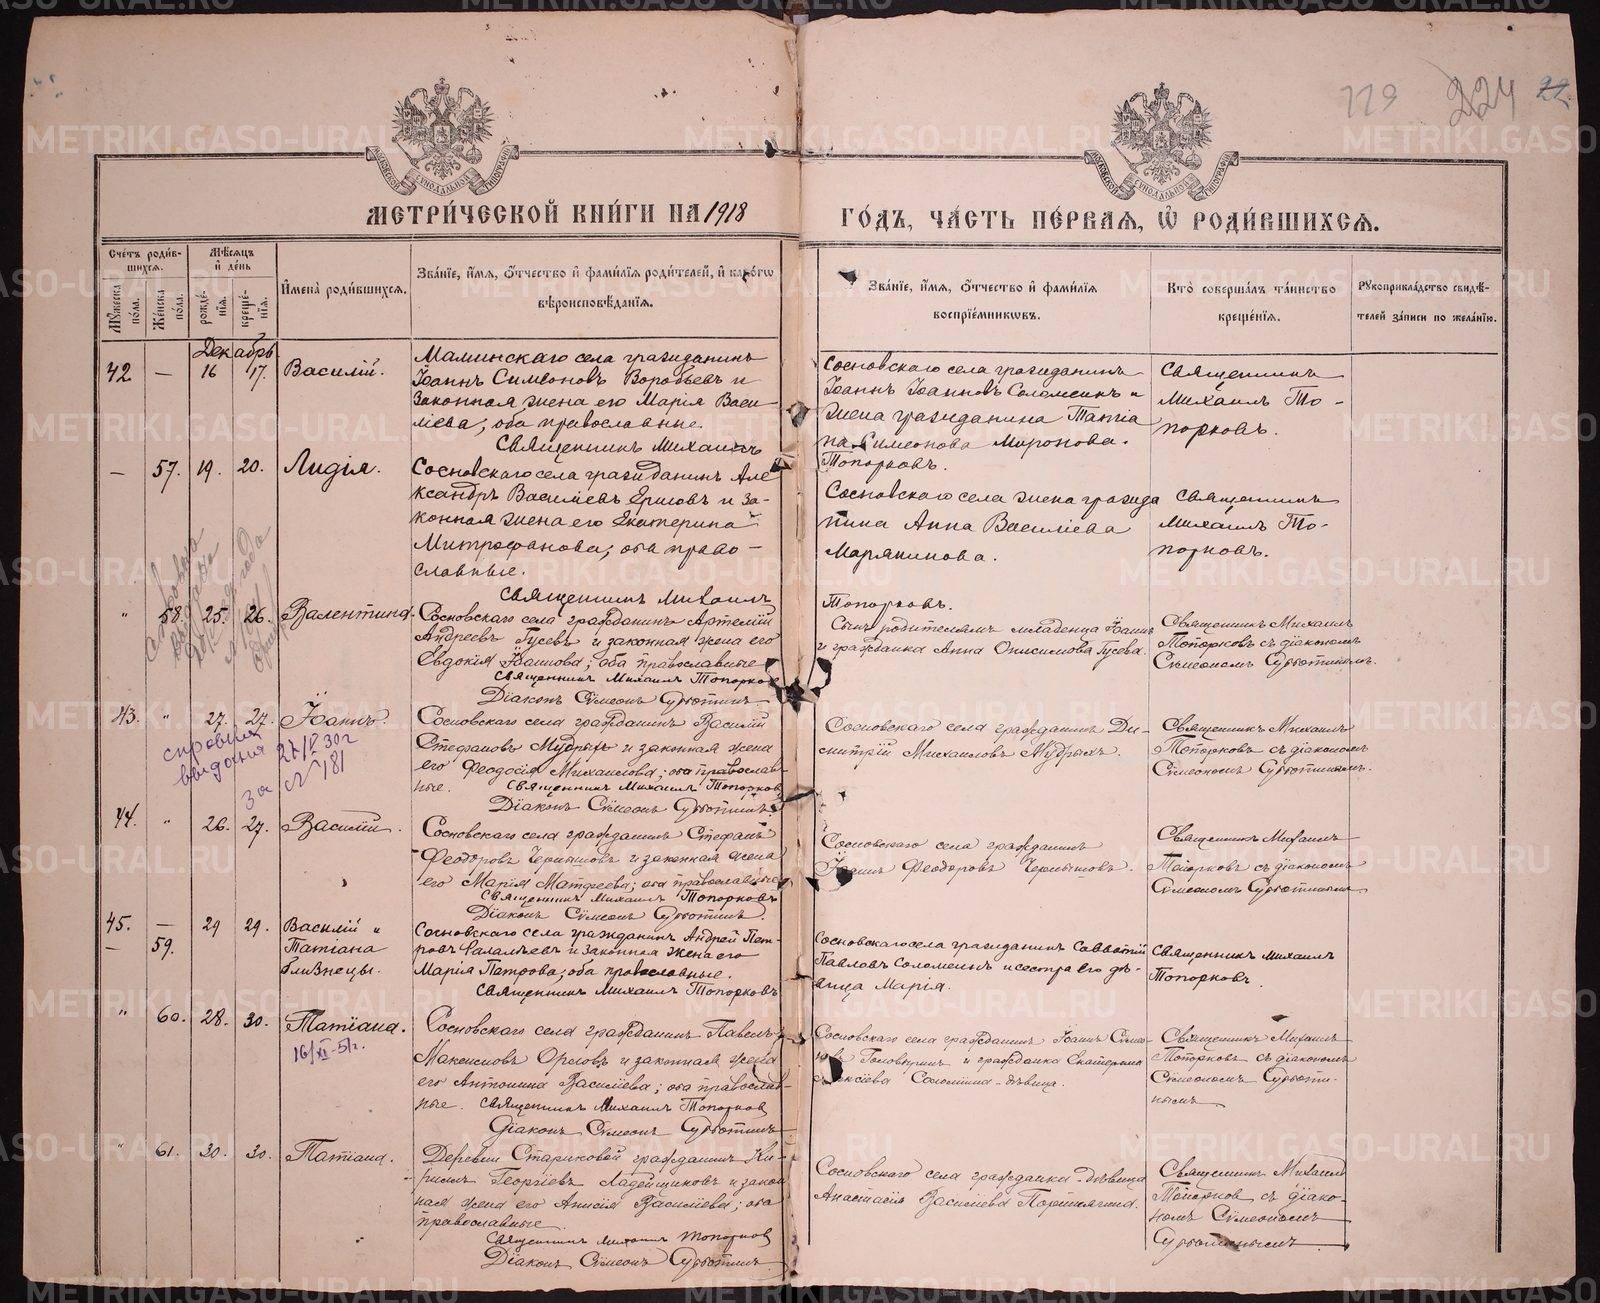 119 224 22
МОСКОВСКОЙ СѴНОДАЛЬНОЙ ТИПОГРАФІИ
МОСКОВСКОЙ СѴНОДАЛЬНОЙ ТИПОГРАФІИ
МЕТРИ́ЧЕСКОЙ КНИ́ГИ НА 1918
ГО́ДЪ, ЧА́СТЬ ПЕ́РВАЯ, Ѽ РОДИ́ВШИХСЯ.
Сче́тъ роди́в-
шихся.
Мꙋжеска по́ла.
Же́нска по́ла.
Мѣ́сяцъ
и҆ де́нь
рожде́-
нїя.
креще́-
нїя.
И҆мена̀ роди́вшихся.
Зва́нїе, и҆́мя, ѻ҆́тчество и҆ фами́лїя роди́телей, и҆ како́гѡ
вѣроисповѣ́данїя.
Зва́нїе, и҆́мя, ѻ҆́тчество и҆ фами́лїя
воспрїе́мникѡвъ.
Кто̀ соверша́лъ та́инство
креще́нїя.
Рꙋкоприкла́дство свидѣ́-
телей за́писи по жела́нїю.
Декабрь
42 — 16 17. Василій.
Маминскаго села гражданинъ
Іоаннъ Симеоновъ Воробьевъ и
законная жена его Марія Васи-
ліева; оба православные.
Священникъ Михаилъ
Сосновскаго села гражданинъ
Іоаннъ Іоанновъ Соломеинъ и
жена гражданина Татіа
на Симеонова Миронова.
Топорковъ.
Священникъ
Михаилъ То-
порковъ.
— 57. 19. 20. Лидія.
Сосновскаго села гражданинъ Але
ксандръ Василіевъ и за-
конная жена его Екатерина
Митрофанова; оба право-
славные.
Священникъ Михаилъ
Сосновскаго села жена гражда
нина Анна Василіева
Марянинова.
Топорковъ.
Священникъ
Михаилъ То-
порковъ.
" 58. 25. 26. Валентина.
Сосновскаго села гражданинъ Артемій
Андреевъ Гусевъ и законная жена его
Евдокія Іоаннова; оба православные
Священникъ Михаилъ Топорков
Діаконъ Сѵмеонъ Субботинъ
Сынъ родителямъ младенца Іоаннъ
и гражданка Анна Онисимова Гусева.
Священникъ Михаилъ
Топорковъ съ діакономъ
Сѵмеономъ Субботинымъ.
43. " 27. 27. Іоаннъ.
справка
выдана 27/V 30 г
за № 181
Сосновскаго села гражданинъ Василій
Стефановъ Мудрыхъ и законная жена
его Феодосія Михаилова; оба православ-
ные. Священникъ Михаилъ Топорков
Діаконъ Сѵмеонъ Субботинъ.
Сосновскаго села гражданинъ Ди-
митрій Михаиловъ Мудрыхъ.
Священникъ Михаилъ
Топорковъ съ діакономъ
Сѵмеономъ Субботинымъ.
44. " 26. 27. Василій.
Сосновскаго села гражданинъ Стефанъ
Феодоровъ Чернышовъ и законная жена
его Марія Матфеева; оба православные
Священникъ Михаилъ Топорковъ
Діаконъ Сѵмеонъ Субботинъ.
Сосновскаго села гражданинъ
Іоаннъ Феодоровъ Чернышовъ.
Священникъ Михаилъ
Топорковъ съ діакономъ
Сѵмеономъ Субботинымъ
45. — 29 29. Василій и
— 59. Татіана
близнецы.
Сосновскаго села гражданинъ Андрей Пет-
ровъ и законная жена его
Марія Петрова; оба православные.
Священникъ Михаилъ Топорковъ
Сосновскаго села гражданинъ Савватій
Павловъ Соломеинъ и сестра его дѣ-
вица Марія.
Священникъ Михаилъ
Топорковъ.
" 60. 28. 30. Татіана.
16/XI-51г.
Сосновскаго села гражданинъ Павелъ
Максимовъ Орловъ и законная жена
его Антонина Василіева; оба православ-
ные. Священникъ Михаилъ Топорков
Діаконъ Сѵмеонъ Субботинъ
Сосновскаго села гражданинъ Іоаннъ Симео
новъ и гражданка Екатерина
Алексіева Соломеина - дѣвица.
Священникъ Михаилъ
Топорковъ съ діакономъ
Сѵмеономъ Субботи-
нымъ
" 61. 30. 30. Татіана.
Деревни Стариковой гражданинъ Ки-
риллъ Георгіевъ Ладейщиковъ и закон
ная жена его Анисія Василіева; оба
православные.
Священникъ Михаилъ Топорков
Діаконъ Сѵмеонъ Субботинъ.
Сосновскаго села гражданка - дѣвица
Анастасія Василіева Поршнягина.
Священникъ Михаилъ
Топорков съ діако-
номъ Сѵмеономъ
Субботинымъ
METRIKI.GASO-URAL.RU